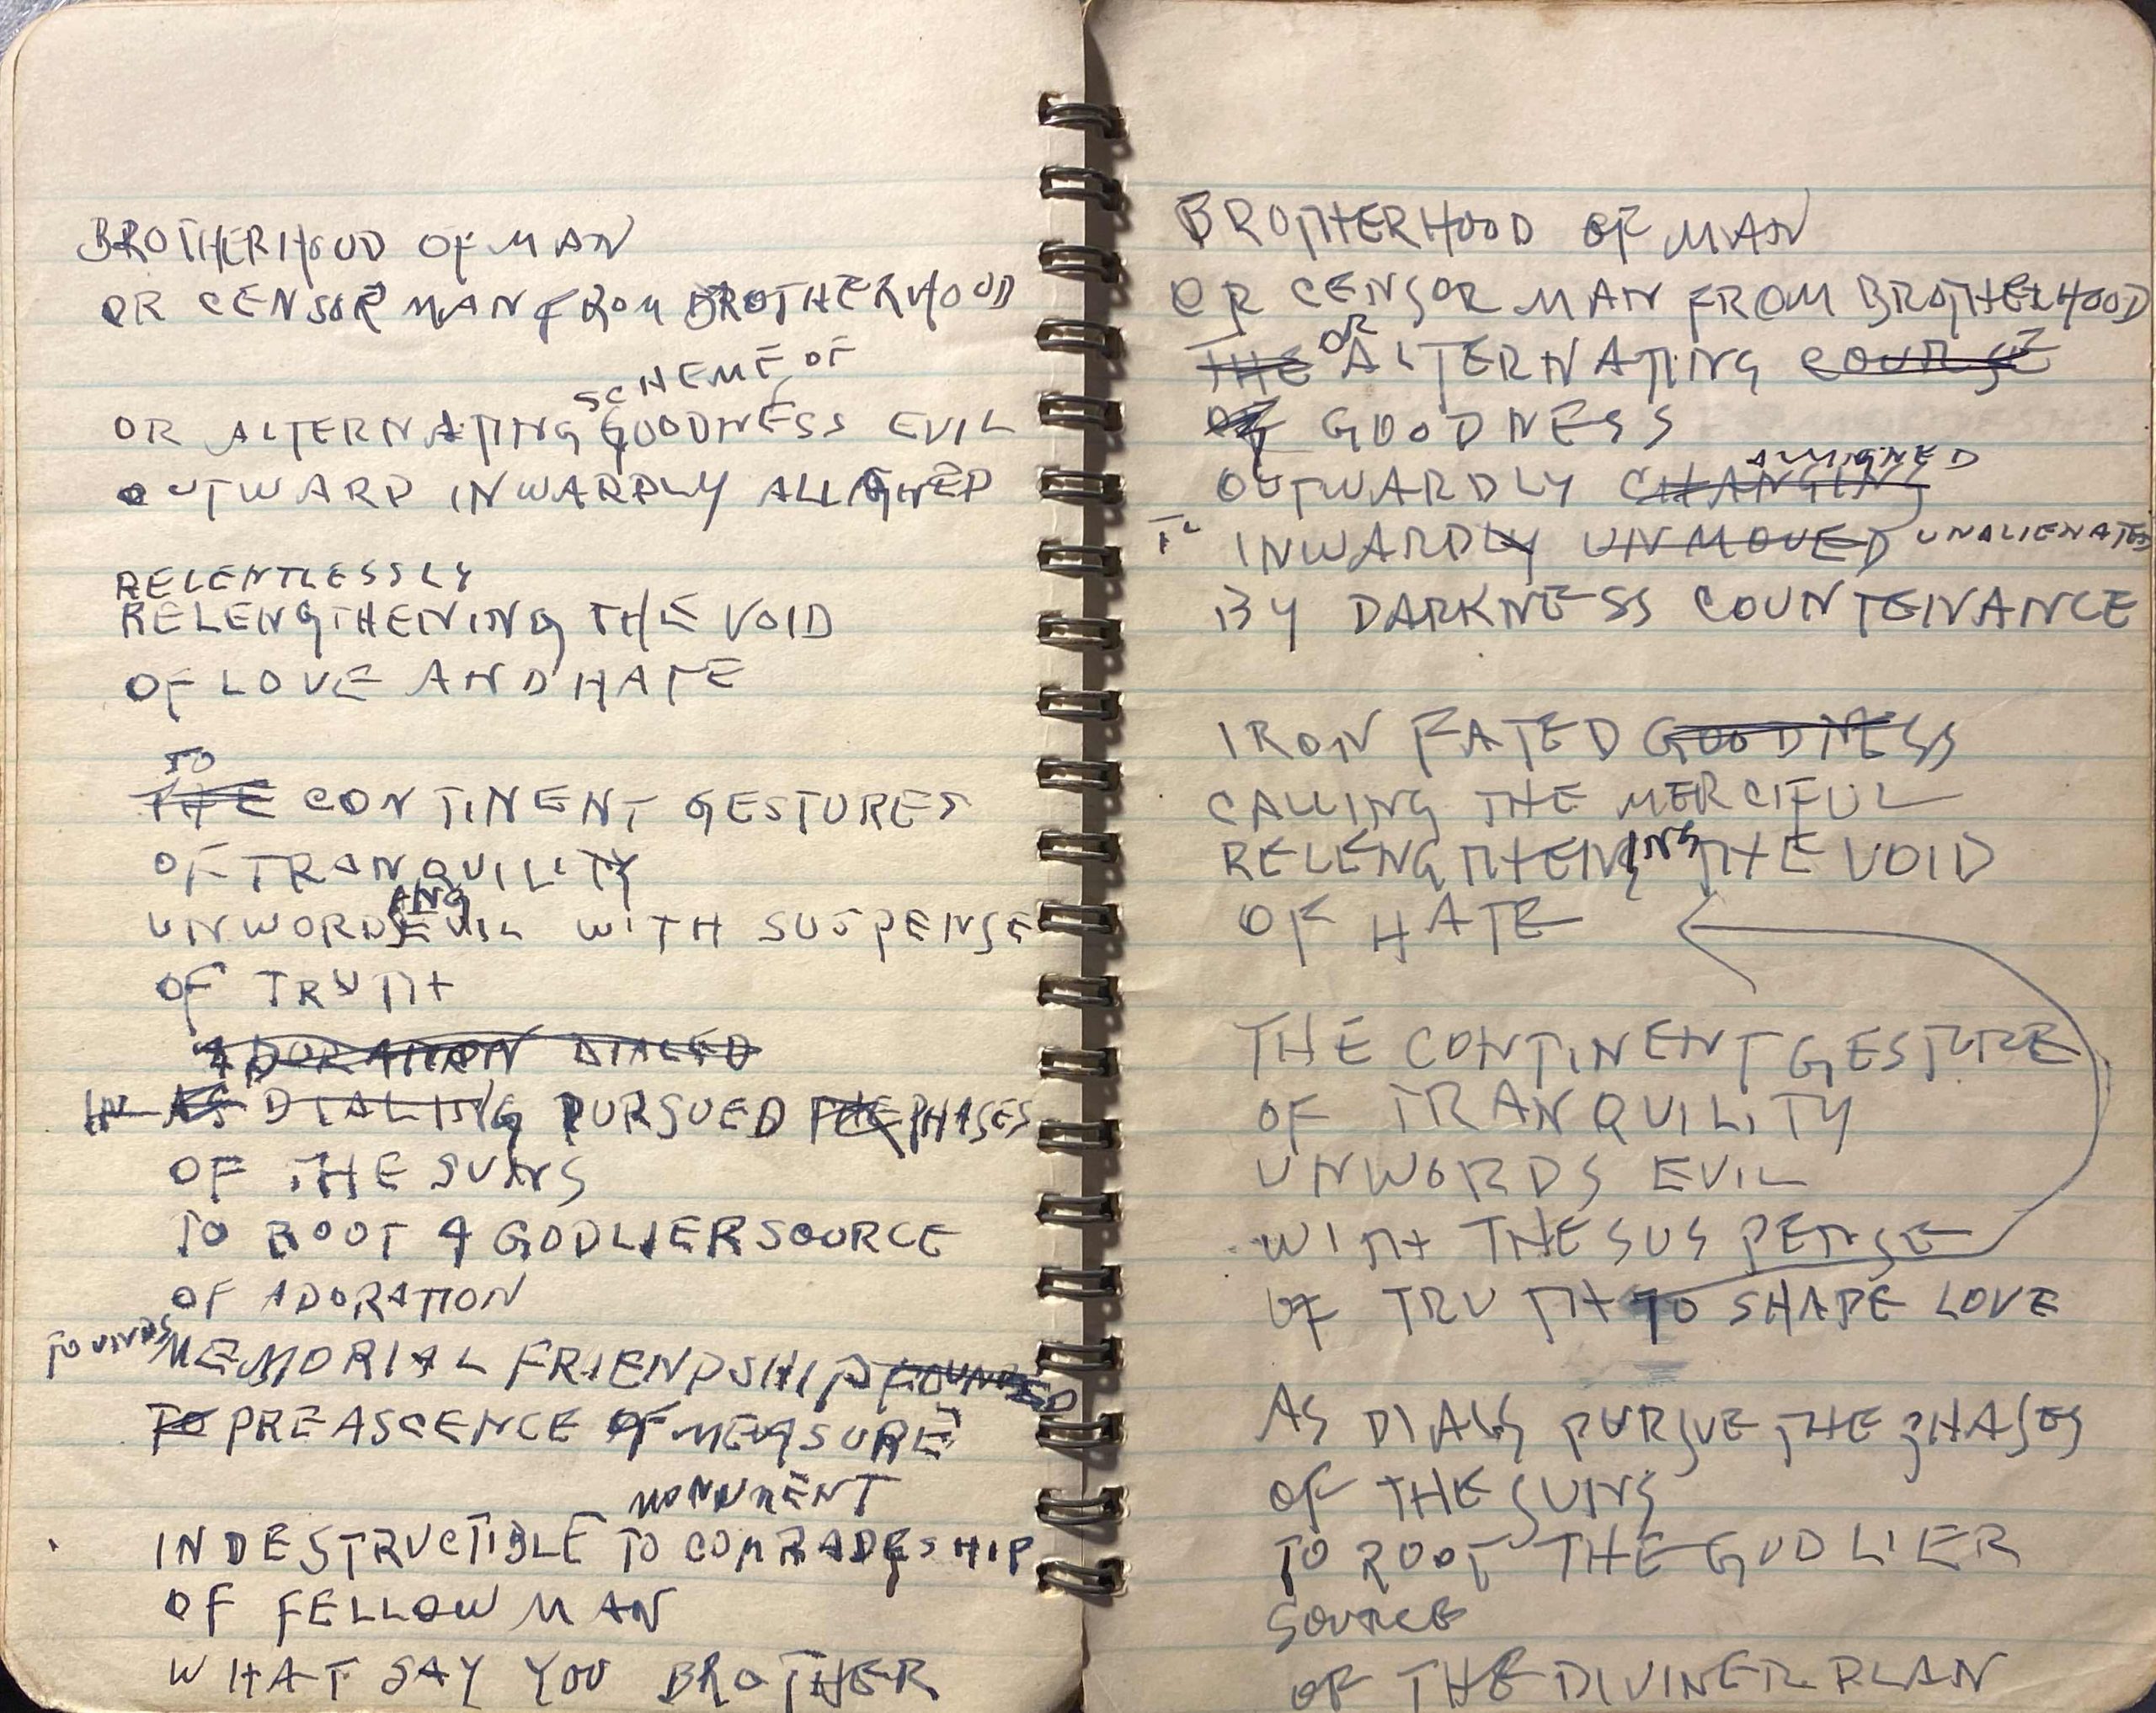 BROTHERHOOD OF MAN
OR CENSOR MAN FROM BROTHERHOOD
SCHEME OF
OR ALTERNATING GOODNESS EVIL
OUTWARD INWARDLY ALLIGNED
RELENTLESSLY
RELENGTHENING THE VOID
OF LOVE AND HATE
TO
THE CONTINENT GESTURES
OF TRANQUILITY
ING
UNWORDS EVIL WITH SUSPENSE
OF TRUTH
ADORATION DIALED
IN AS DIALING PURSUED THE PHASES
OF THE SUNS
TO ROOT A GODLIER SOURCE
OF ADORATION
MEMORIAL FRIENDSHIPS FOUNDED
TO PREASCENCE OF MEASURE
MONUMENT
INDESTRUCTIBLE TO COMRADESHIP
OF FELLOW MAN
WHAT SAY YOU BROTHER
BROTHERHOOD OF MAN
OR CENSOR MAN FROM BROTHERHOOD
OR
THE ALTERNATING COURSE
OF GOODNESS
ALLIGNED
OUTWARDLY CHANGING
TO INWARDLY UNMOVED UNALIENATED
BY DARKNESS COUNTENANCE
IRON FATED GOODNESS
CALLING THE MERCIFUL
RELENGTHENING THE VOID
OF HATE
THE CONTINENT GESTURE
OF TRANQUILITY
UNWORDS EVIL
WITH THE SUSPENSE
OF TRUTH TO SHAPE LOVE
AS DIALS PURSUE THE PHASES
OF THE SUNS
TO ROOT THE GODLIER
SOURCE
OF THE DIVINER PLAN